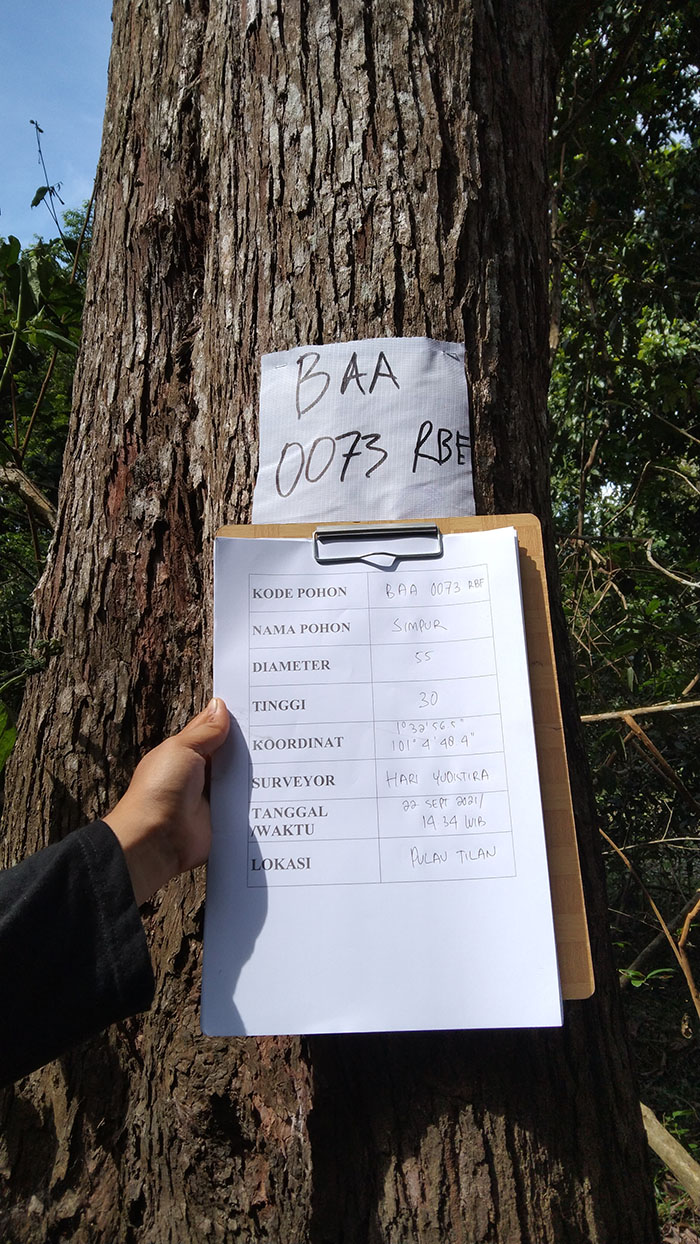 BAA
0073 RBE
KODE POHON BAA 0073 RBE
NAMA POHON SIMPUR
DIAMETER 55
TINGGI 30
KOORDINAT 1°32'56.5"
101°4'48.4"
SURVEYOR HARI YUDISTIRA
TANGGAL
/WAKTU 22 SEPT 2021/
14 34 WIB
LOKASI PULAU TILAN